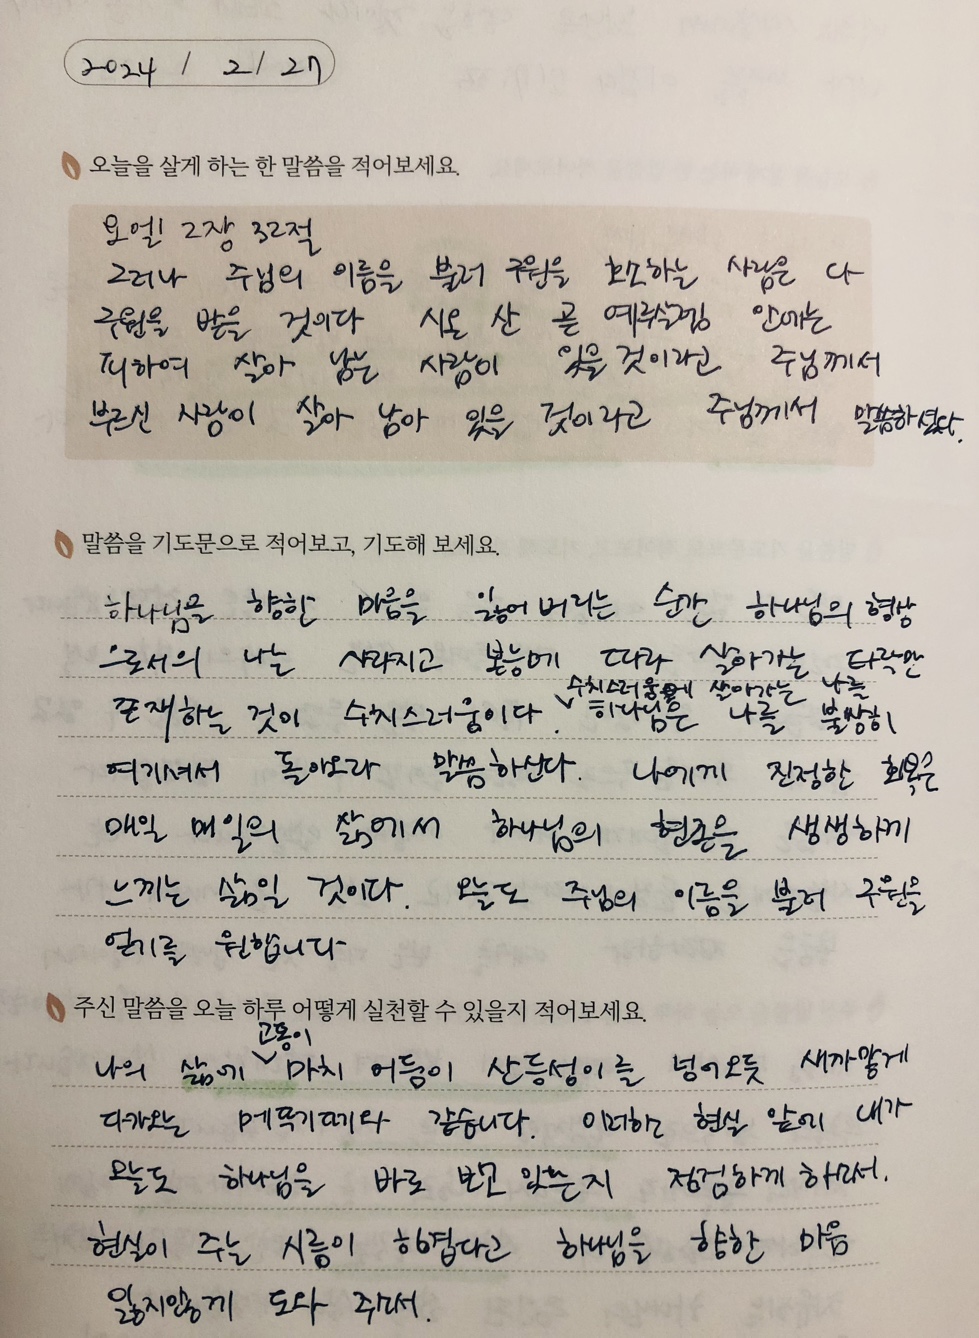 2024 / 2 / 27
오늘을 살게 하는 한 말씀을 적어보세요.
요엘 2장 32절
그러나 주님의 이름을 불러 구원을 호소하는 사람은 다
구원을 받을 것이다 시온 산 곧 예루살렘 안에는
피하여 살아 남는 사람이 있을 것이라고 주님께서
부르신 사람이 살아 남아 있을 것이라고 주님께서 말씀하셨다.
말씀을 기도문으로 적어보고, 기도해 보세요.
하나님을 향한 마음을 잃어버리는 순간 하나님의 형상
으로서의 나는 사라지고 본능에 따라 살아가는 타락만
수치스러움에 살아가는 나를
존재하는 것이 수치스러움이다. 하나님은 나를 불쌍히
여기셔서 돌아오라 말씀하신다. 나에게 진정한 회복은
매일 매일의 삶에서 하나님의 현존을 생생하게
느끼는 삶일 것이다. 오늘도 주님의 이름을 불러 구원을
얻기를 원합니다
주신 말씀을 오늘 하루 어떻게 실천할 수 있을지 적어보세요.
고통이
나의 삶에 마치 어둠이 산등성이를 넘어오듯 새까맣게
다가오는 메뚜기떼와 같습니다. 이러한 현실 앞에 내가
오늘도 하나님을 바로 보고 있는지 점검하게 하소서.
현실이 주는 시름이 힘겹다고 하나님을 향한 마음
잃지않게 도와 주소서.